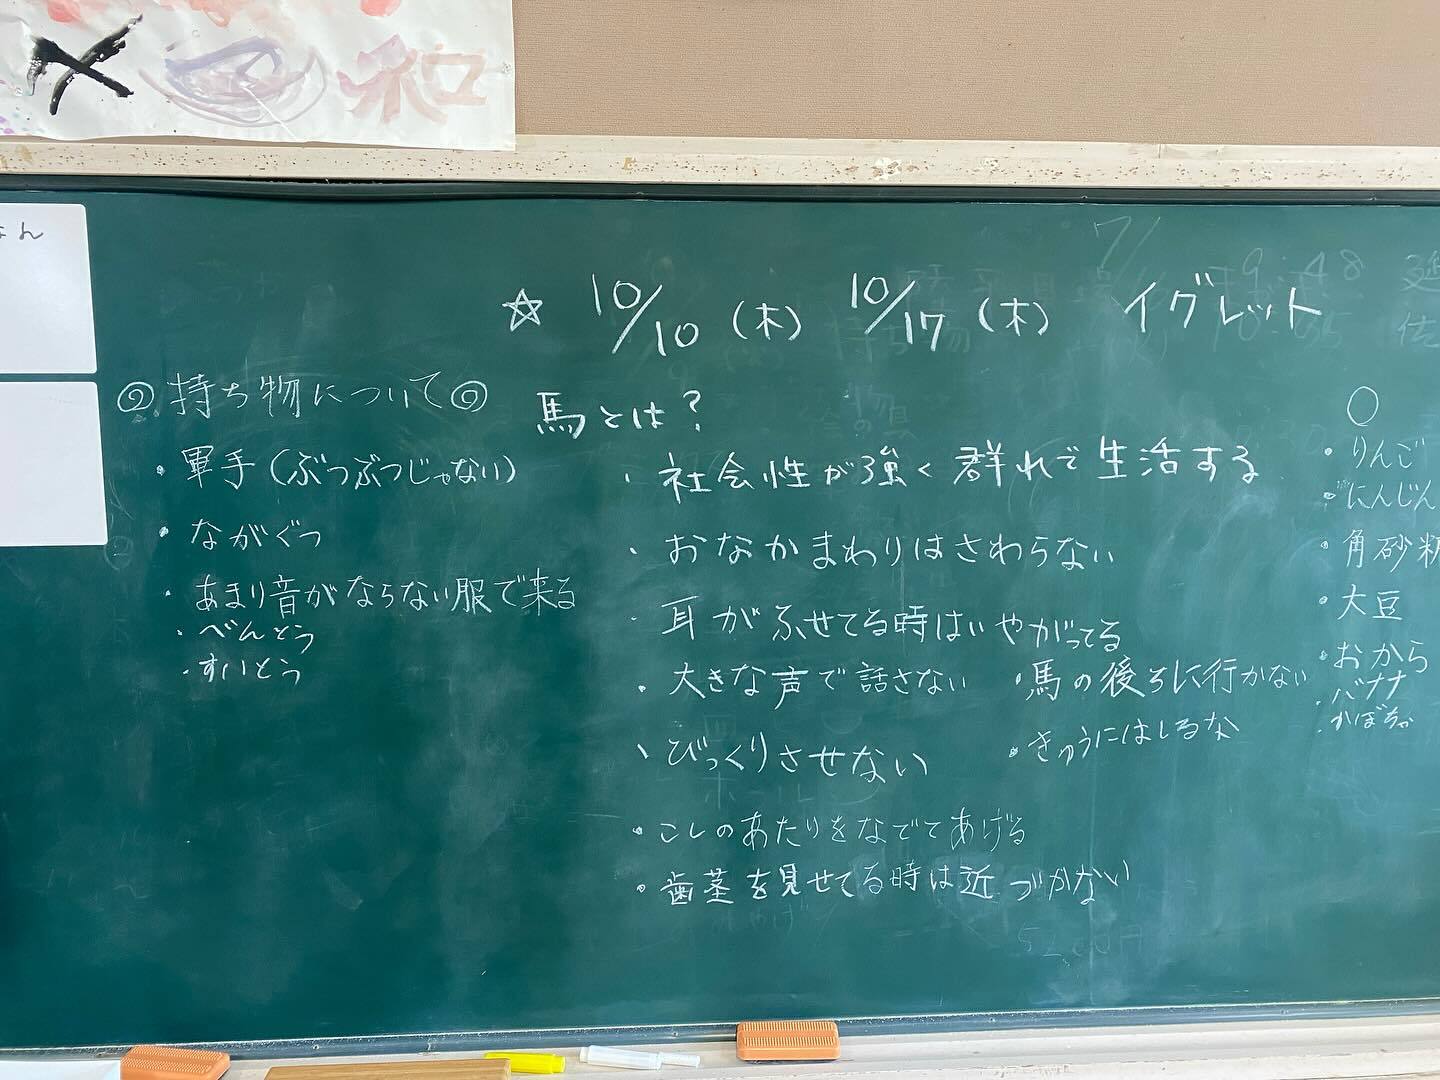 和
☆ 10/10 (木) 10/17 (木) イグレット
持ち物について
・軍手(ぶつぶつじゃない)
・ながぐつ
・あまり音がならない服で来る
・べんとう
・すいとう
馬とは?
・社会性が強く群れで生活する
・おなかまわりはさわらない
・耳がふせてる時はいやがってる
・大きな声で話さない
・馬の後ろに行かない
・びっくりさせない
・きゅうにはしるな
・こしのあたりをなでてあげる
・歯茎を見せてる時は近づかない
○
・りんご
・にんじん
・角砂糖
・大豆
・おから
・バナナ
・かぼちゃ